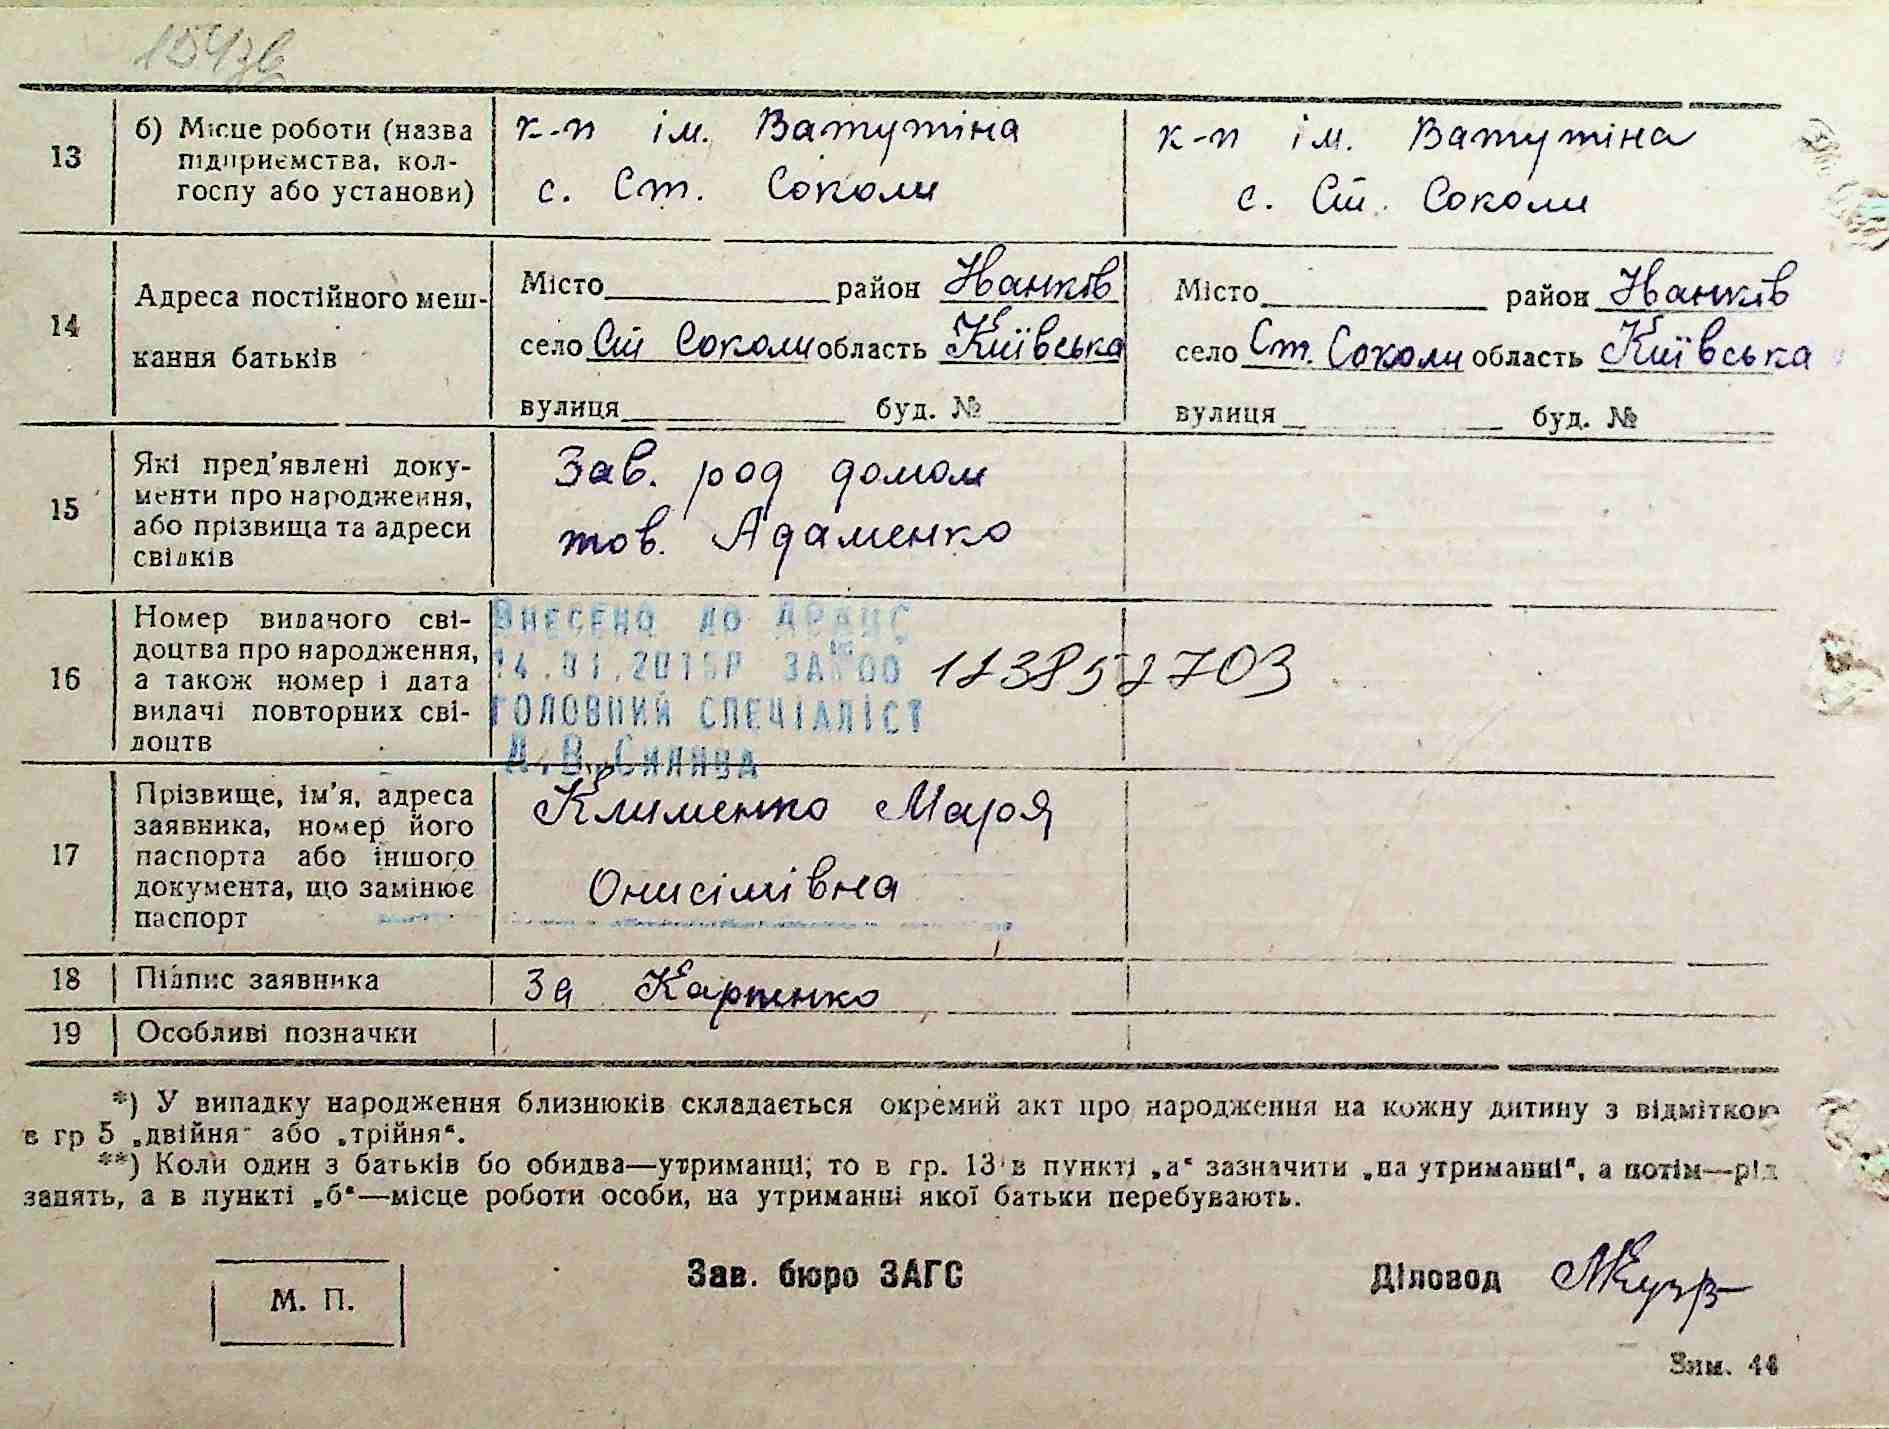 13
б) Місце роботи (назва
підприємства, кол-
госпу або установи)
к-п ім. Ватутіна
с. Ст. Соколи
к-п ім. Ватутіна
с. Ст. Соколи
14
Адреса постійного меш-
кання батьків
Місто район Іванків
село Ст Соколи область Київська
вулиця буд. №
Місто район Іванків
село Ст. Соколи область Київська
вулиця буд. №
15
Які пред’явлені доку-
менти про народження,
або прізвища та адреси
свідків
Зав. род домом
тов. Адаменко
16
Номер виданого сві-
доцтва про народження,
а також номер і дата
видачі повторних сві-
доцтв
Внесено до ДРАЦС
ГОЛОВНИЙ СПЕЦІАЛІСТ
17
Прізвище, ім’я, адреса
заявника, номер його
паспорта або іншого
документа, що замінює
паспорт
Клименко Марія
Онисімівна
18
Підпис заявника
За Карпенко
19
Особливі позначки
*) У випадку народження близнюків складається окремий акт про народження на кожну дитину з відміткою
в гр 5 „двійня“ або „трійня“.
**) Коли один з батьків бо обидва—утриманці; то в гр. 13 в пункті „а“ зазначити „на утриманні“, а потім—рід
занять, а в пункті „б“—місце роботи особи, на утриманні якої батьки перебувають.
М. П.
Зав. бюро ЗАГС
Діловод
Зим. 44